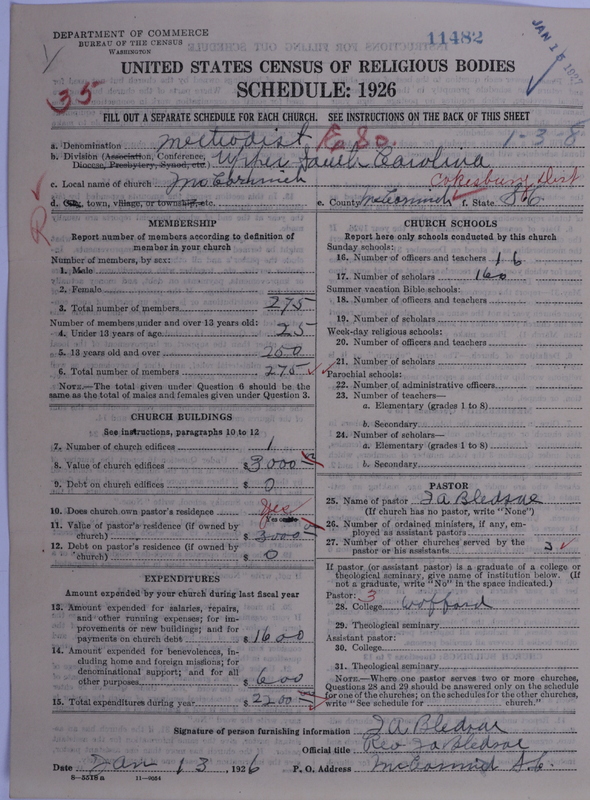 DEPARTMENT OF COMMERCE
BUREAU OF THE CENSUS
WASHINGTON
11482
JAN 15 1927
UNITED STATES CENSUS OF RELIGIOUS BODIES
SCHEDULE: 1926
35
FILL OUT A SEPARATE SCHEDULE FOR EACH CHURCH. SEE INSTRUCTIONS ON THE BACK OF THIS SHEET
a. Denomination Methodist E. So. 1-3-8
b. Division (Association, Conference, Diocese, Presbytery, Synod, etc.) Upper South Carolina
Cokesbury Dist
c. Local name of church McCormick
d. City, town, village, or township, etc. e. County McCormick f. State S C
R
MEMBERSHIP
Report number of members according to definition of
member in your church
Number of members, by sex:
1. Male
2. Female
3. Total number of members 275
Number of members under and over 13 years old:
4. Under 13 years of age 25
5. 13 years old and over 250
6. Total number of members 275
NOTE.—The total given under Question 6 should be the
same as the total of males and females given under Question 3.
CHURCH BUILDINGS
See instructions, paragraphs 10 to 12
7. Number of church edifices 1
8. Value of church edifices $ 3000
9. Debt on church edifices $ 0
10. Does church own pastor's residence Yes
Yes or no
11. Value of pastor's residence (if owned by
church) $ 3000
12. Debt on pastor's residence (if owned by
church) $ 0
EXPENDITURES
Amount expended by your church during last fiscal year
13. Amount expended for salaries, repairs,
and other running expenses; for im-
provements or new buildings; and for
payments on church debt $ 1600
14. Amount expended for benevolences, in-
cluding home and foreign missions; for
denominational support; and for all
other purposes $ 600
15. Total expenditures during year $ 2200
CHURCH SCHOOLS
Report here only schools conducted by this church
Sunday schools:
16. Number of officers and teachers 16
17. Number of scholars 160
Summer vacation Bible schools:
18. Number of officers and teachers
19. Number of scholars
Week-day religious schools:
20. Number of officers and teachers
21. Number of scholars
Parochial schools:
22. Number of administrative officers
23. Number of teachers—
a. Elementary (grades 1 to 8)
b. Secondary
24. Number of scholars—
a. Elementary (grades 1 to 8)
b. Secondary
PASTOR
25. Name of pastor J A Bledsoe
(If church has no pastor, write "None")
26. Number of ordained ministers, if any, em-
ployed as assistant pastors
27. Number of other churches served by the
pastor or his assistants 3
If pastor (or assistant pastor) is a graduate of a college or
theological seminary, give name of institution below. (If
not a graduate, write "No" in the space indicated.)
Pastor: 3
28. College Wofford
29. Theological seminary
Assistant pastor:
30. College
31. Theological seminary
NOTE.—Where one pastor serves two or more churches,
Questions 28 and 29 should be answered only on the schedule
for one of the churches; on the schedules for the other churches,
write "See schedule for church."
Signature of person furnishing information J A Bledsoe
Official title Rev Ja Bledsoe
Date Jan 13, 1926 P. O. Address McCormick S.C.
8—5518a 11—9054